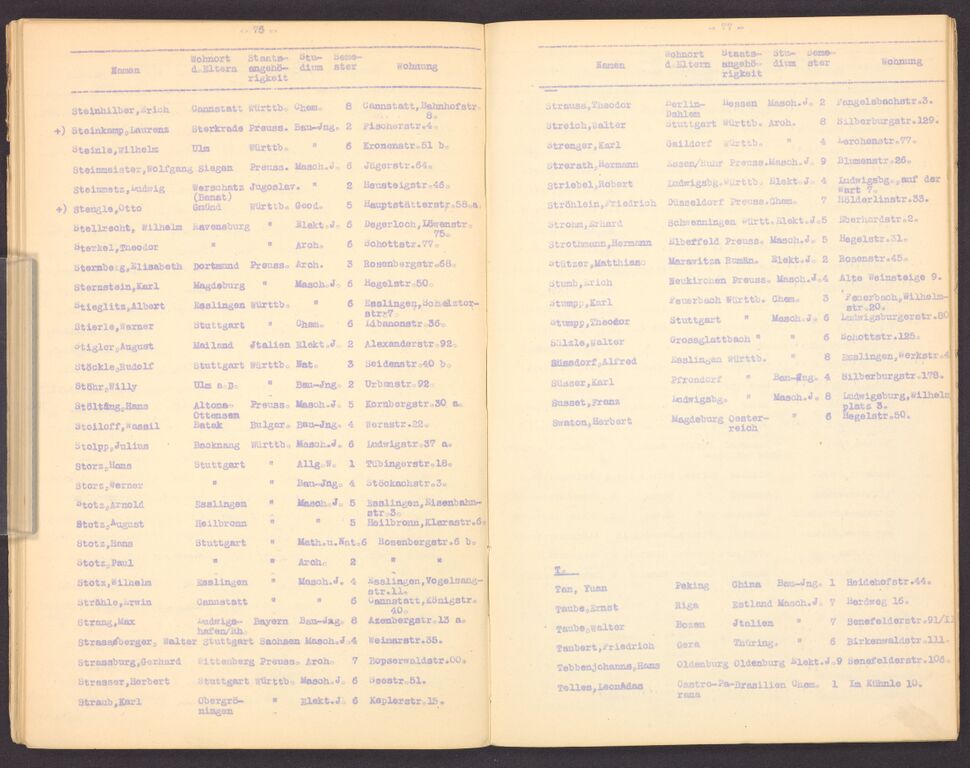 - 76 -
Namen Wohnort d.Eltern Staats-angehö-rigkeit Stu-dium Seme-ster Wohnung
Steinhilber,Erich Cannstatt Württb. Chem. 8 Cannstatt,Bahnhofstr.
8.
+) Steinkamp,Laurenz Sterkrade Preuss. Bau-Jng. 2 Fischerstr.4.
Steinle,Wilhelm Ulm Württb. " 6 Kronenstr.51 b.
Steinmeister,Wolfgang Siegen Preuss. Masch.J. 6 Jägerstr.64.
Steinmetz,Ludwig Werschetz Jugoslav. " 2 Heusteigstr.46.
(Banat)
+) Stengle,Otto Gmünd Württb. Geod. 5 Hauptstätterstr.58.a.
Stellrecht, Wilhelm Ravensburg " Elekt.J. 6 Degerloch,Löwenstr.
75.
Sterkel,Theodor " " Arch. 6 Schottstr.77.
Sternberg,Elisabeth Dortmund Preuss. Arch. 3 Rosenbergstr.68.
Sternstein,Karl Magdeburg " Masch.J. 6 Hegelstr.50.
Stieglitz,Albert Esslingen Württb. " 6 Esslingen,Schelztor-
str.7.
Stierle,Werner Stuttgart " Chem. 6 Libanonstr.36.
Stigler,August Mailand Jtalien Elekt.J. 2 Alexanderstr.92.
Stöckle,Rudolf Stuttgart Württb. Nat. 3 Seidenstr.40 b.
Stöhr,Willy Ulm a.D. " Bau-Jng. 2 Urbanstr.92.
Stölting,Hans Altona- Preuss. Masch.J. 5 Kornbergstr.30 a.
Ottensen
Stoiloff,Wassil Batak Bulgar. Bau-Jng. 4 Werastr.22.
Stolpp,Julius Backnang Württb. Masch.J. 6 Ludwigstr.37 a.
Storz,Hans Stuttgart " Allg.W. 1 Tübingerstr.18.
Storz,Werner " " Bau-Jng. 4 Stöckachstr.3.
Stotz,Arnold Esslingen " Masch.J. 5 Esslingen,Eisenbahn-
str.3.
Stotz,August Heilbronn " " 5 Heilbronn,Klarastr.6.
Stotz,Hans Stuttgart " Math.u.Nat.6 Rosenbergstr.6 b.
Stotz,Paul " " Arch. 2 " "
Stotz,Wilhelm Esslingen " Masch.J. 4 Esslingen,Vogelsang-
str.11.
Strähle,Erwin Cannstatt " " 6 Cannstatt,Königstr.
40.
Strang,Max Ludwigs- Bayern Bau-Jng. 8 Azenbergstr.13 a.
hafen/Rh.
Strassberger, Walter Stuttgart Sachsen Masch.J.4 Weimarstr.35.
Strassburg,Gerhard Wittenberg Preuss. Arch. 7 Hopserwaldstr.00.
Strasser,Herbert Stuttgart Württb. Masch.J. 6 Seestr.51.
Straub,Karl Obergrö- " Elekt.J. 6 Keplerstr.15.
ningen
- 77 -
Namen Wohnort d.Eltern Staats-angehö-rigkeit Stu-dium Seme-ster Wohnung
Strauss,Theodor Berlin- Hessen Masch.J. 2 Fangelsbachstr.3.
Dahlem
Streich,Walter Stuttgart Württb. Arch. 8 Silberburgstr.129.
Strenger,Karl Gaildorf Württb. " 4 Lerchenstr.77.
Strerath,Hermann Essen/Ruhr Preuss.Masch.J. 9 Blumenstr.26.
Striebel,Robert Ludwigsbg.Württb. Elekt.J. 4 Ludwigsbg.,auf der
Wart 7.
Ströhlein,Friedrich Düsseldorf Preuss.Chem. 7 Hölderlinstr.33.
Strohm,Erhard Schwenningen Württ.Elekt.J.5 Eberhardstr.2.
Strothmann,Hermann Elberfeld Preuss. Masch.J. 5 Hegelstr.31.
Stützer,Matthias Marawitza Rumän. Elekt.J. 2 Rosenstr.45.
Stumb,Erich Neukirchen Preuss. Masch.J.4 Alte Weinsteige 9.
Stumpp,Karl Feuerbach Württb. Chem. 3 Feuerbach,Wilhelm-
str.20.
Stumpp,Theodor Stuttgart " Masch.J. 6 Ludwigsburgerstr.80
Sülzle,Walter Grossglattbach " " 6 Schottstr.125.
Süssdorf,Alfred Esslingen Württb. " 8 Esslingen,Werkstr.4
Süsser,Karl Pfrondorf " Bau-Jng. 4 Silberburgstr.178.
Susset,Franz Ludwigsbg. " Masch.J. 8 Ludwigsburg,Wilhelm
platz 3.
Swaton,Herbert Magdeburg Oester- " 6 Hegelstr.50.
reich
T.
Tan, Yuan Peking China Bau-Jng. 1 Heidehofstr.44.
Taube,Ernst Riga Estland Masch.J. 7 Herdweg 16.
Taube,Walter Bozen Jtalien " 7 Senefelderstr.91/II
Taubert,Friedrich Gera Thüring. " 6 Birkenwaldstr.111.
Tebbenjohanns,Hans Oldenburg Oldenburg Elekt.J.9 Senefelderstr.106.
Telles,Leonadas Castro-Pa-Brasilien Chem. 1 Im Kühnle 10.
rana